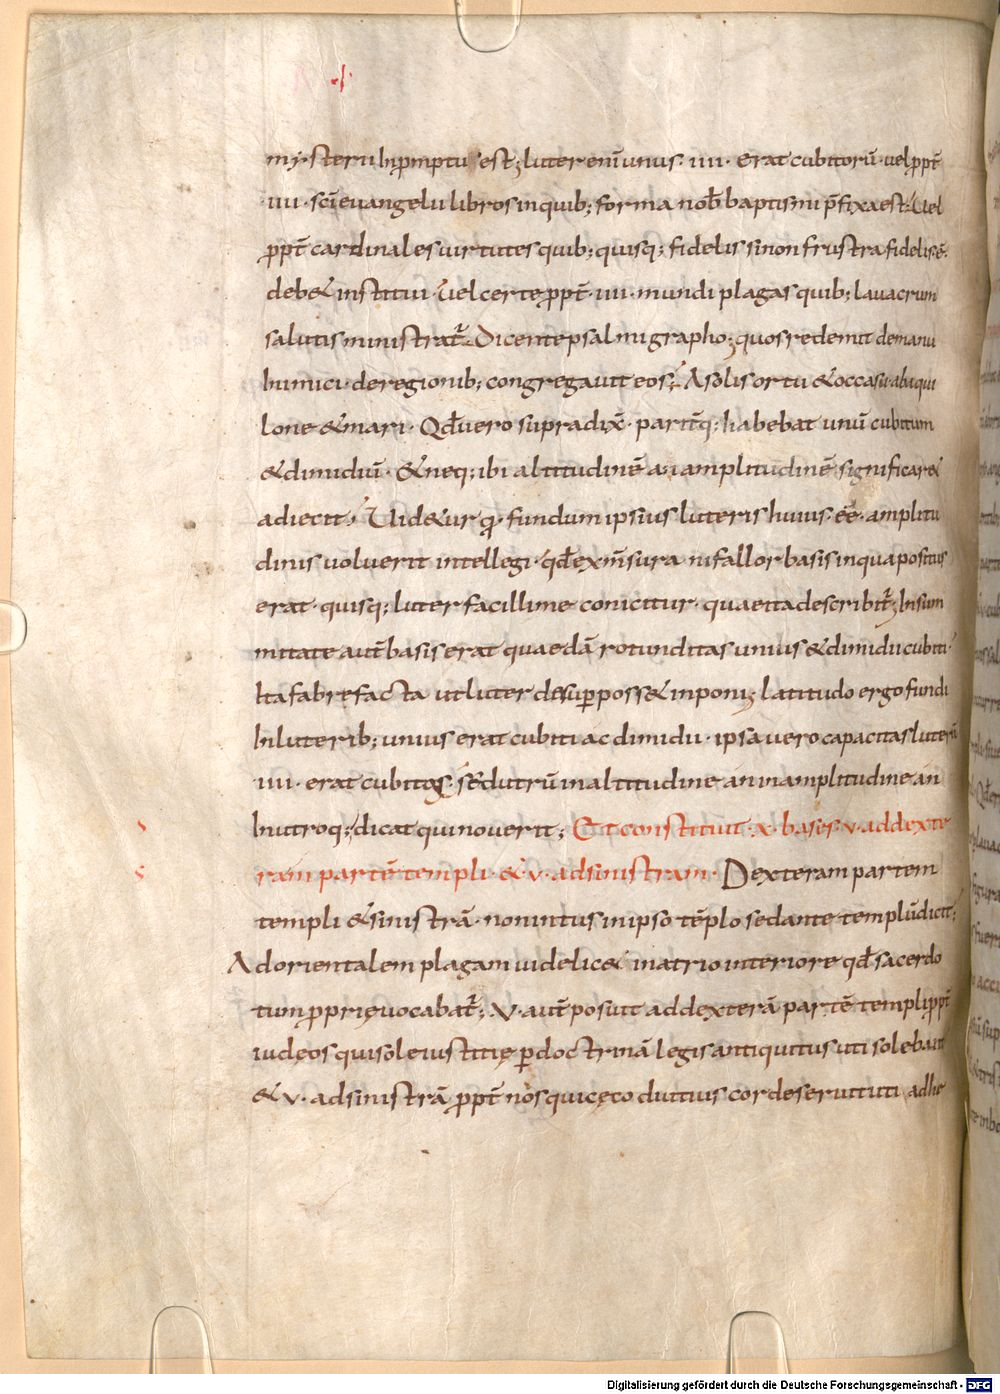 mysterii inpromptu est; luter enī unus · iiii · erat cubitorū · uel ꝓpt̄
iiii · sc̄i euangelii libros in quib; forma nob̄ baptismi p̄fixa est. Uel
ꝓpt̄ cardinales uirtutes quib; quisq; fidelis si non frustra fidelis ē ·
deb& institui · Uel certe ꝓpt̄ · iiii · mundi plagas quib; lauacrum
salutis ministrat̄ · Dicente psalmigrapho; quos redemit de manu
Inimici · de regionib; congregauit eos; A solis ortu & occasu · ab aqui
lone & mari · Qd̄ uero supradix̄ · parūq; habebat unū cubitum
& dimidiū · & neq; ibi altitudinē an amplitudinē significar&
adiecit; Uid&ur q̄ · fundum ipsius luteris huius · eē · amplitu
dinis uoluerit intellegi · qd̄ ex m̄sura ni fallor basis in qua positus
erat · quisq; luter facillime conicitur · quae ita describit̄; In sum
mitate aut̄ basis erat quaedā rotunditas unius & dimidii cubiti ·
Ita fabrefacta ut luter desup̱ poss& inponi; latitudo ergo fundi
In luterib; unius erat cubiti ac dimidii · ipsa uero capacitas luterū
iiii · erat cubitos; sed utrū in altitudine an in amplitudine an
In utroq; dicat qui nouerit; Et constituit · x · bases · v · ad dexte
ram partē templi · & · v · ad sinistram · Dexteram partem
templi & sinistrā · non intus in ipso tēplo sed ante templū dicit;
Ad orientalem plagam uidelic& in atrio interiore qd̄ sacerdo
tum ꝓprię uocabat̄; V · aut̄ posuit ad dexterā partē templi ꝓpt̄
iudęos qui sole iustitię p̱ doctrinā legis antiquitus uti solebant
& v · ad sinistrā ꝓpt̄ nos qui cęco diutius corde seruiuti adhe
Digitalisierung gefördert durch die Deutsche Forschungsgemeinschaft - DFG